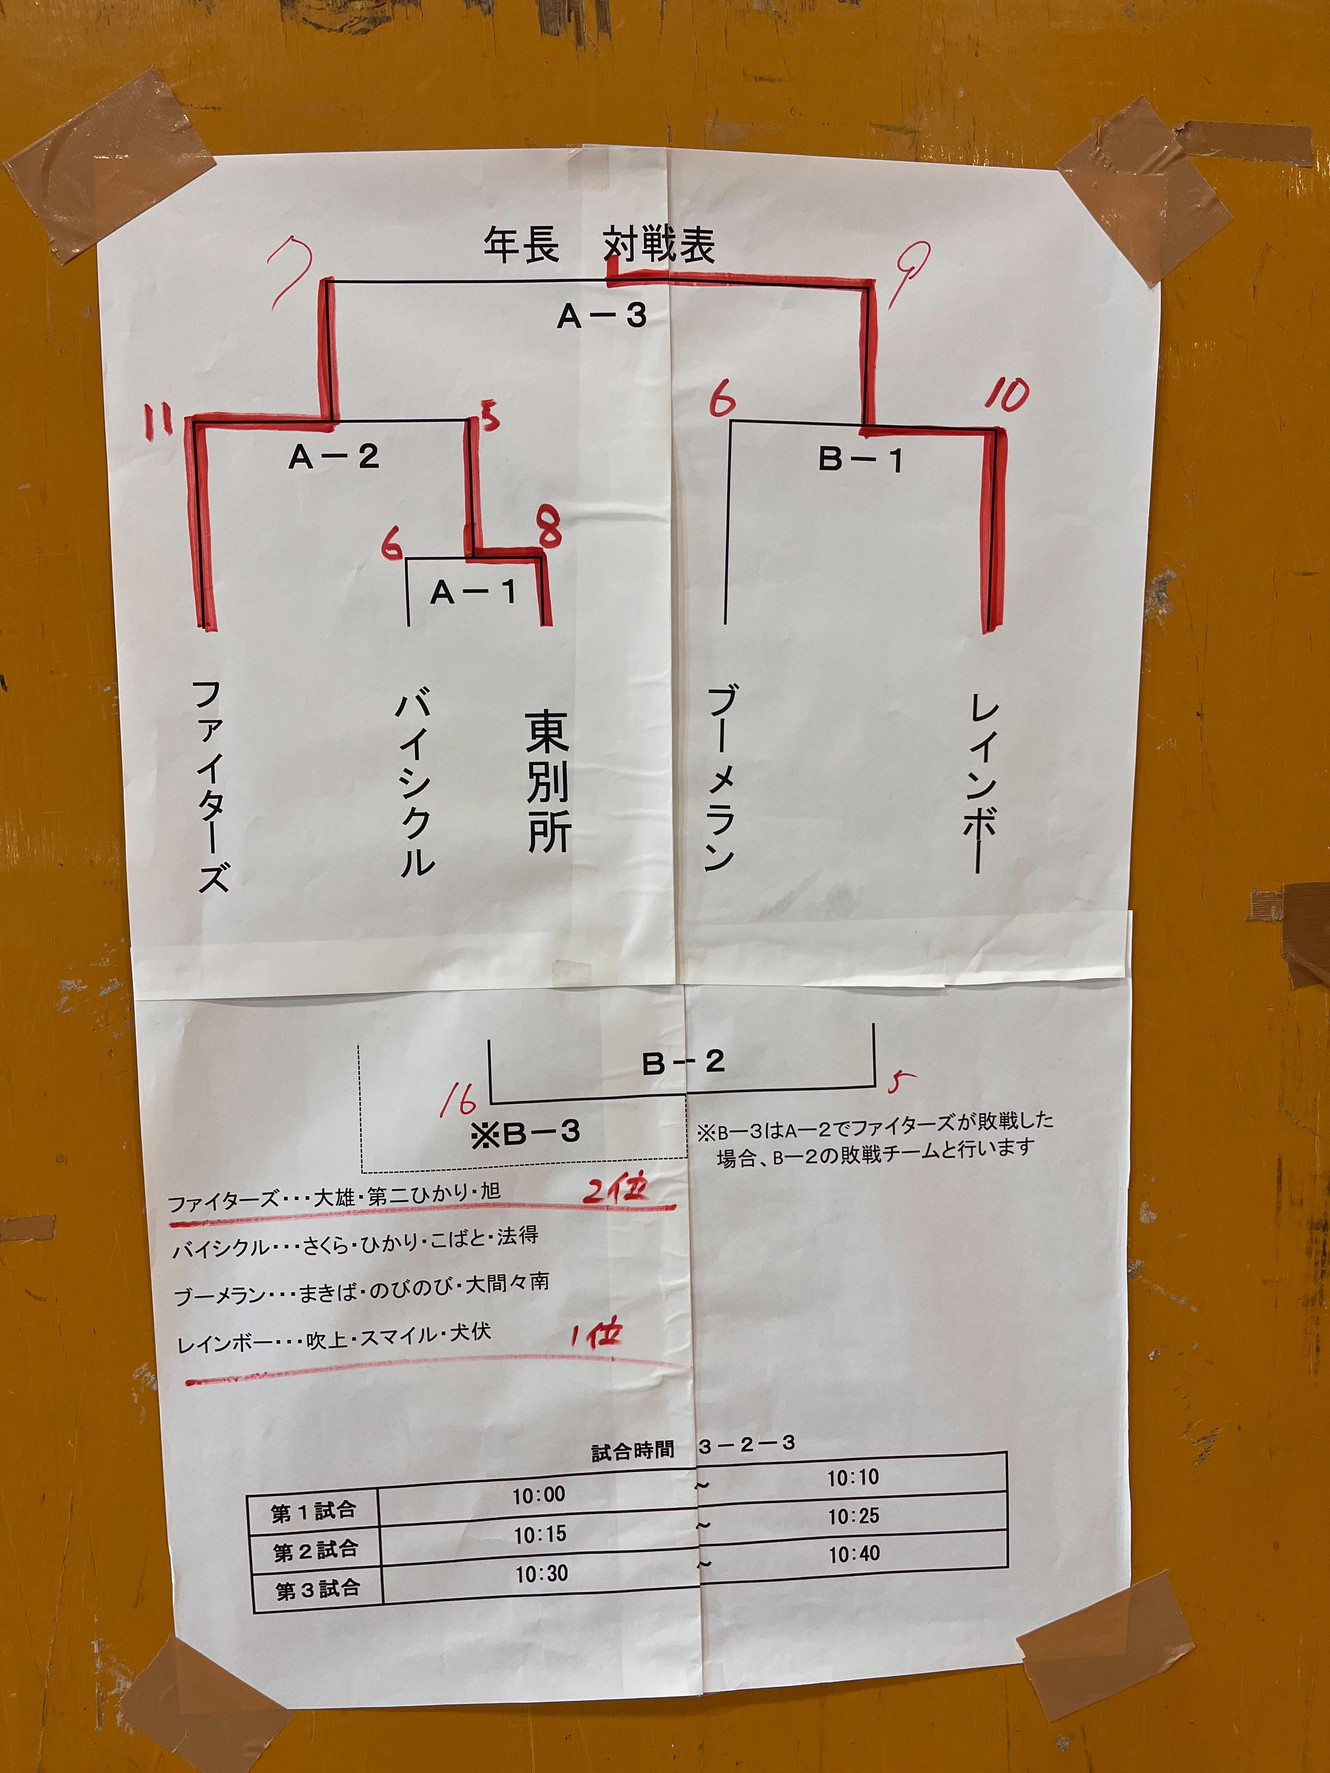 年長　対戦表
7
9
A－3
11
5
6
10
A－2
B－1
6
8
A－1
ファイターズ
バイシクル
東別所
ブーメラン
レインボー
B－2
16
5
※B－3
※B－3はA－2でファイターズが敗戦した
場合、B－2の敗戦チームと行います
ファイターズ・・・大雄・第二ひかり・旭　2位
バイシクル・・・さくら・ひかり・こばと・法得
ブーメラン・・・まきば・のびのび・大間々南
レインボー・・・吹上・スマイル・犬伏　1位
試合時間　3－2－3
第1試合　10:00　～　10:10
第2試合　10:15　～　10:25
第3試合　10:30　～　10:40